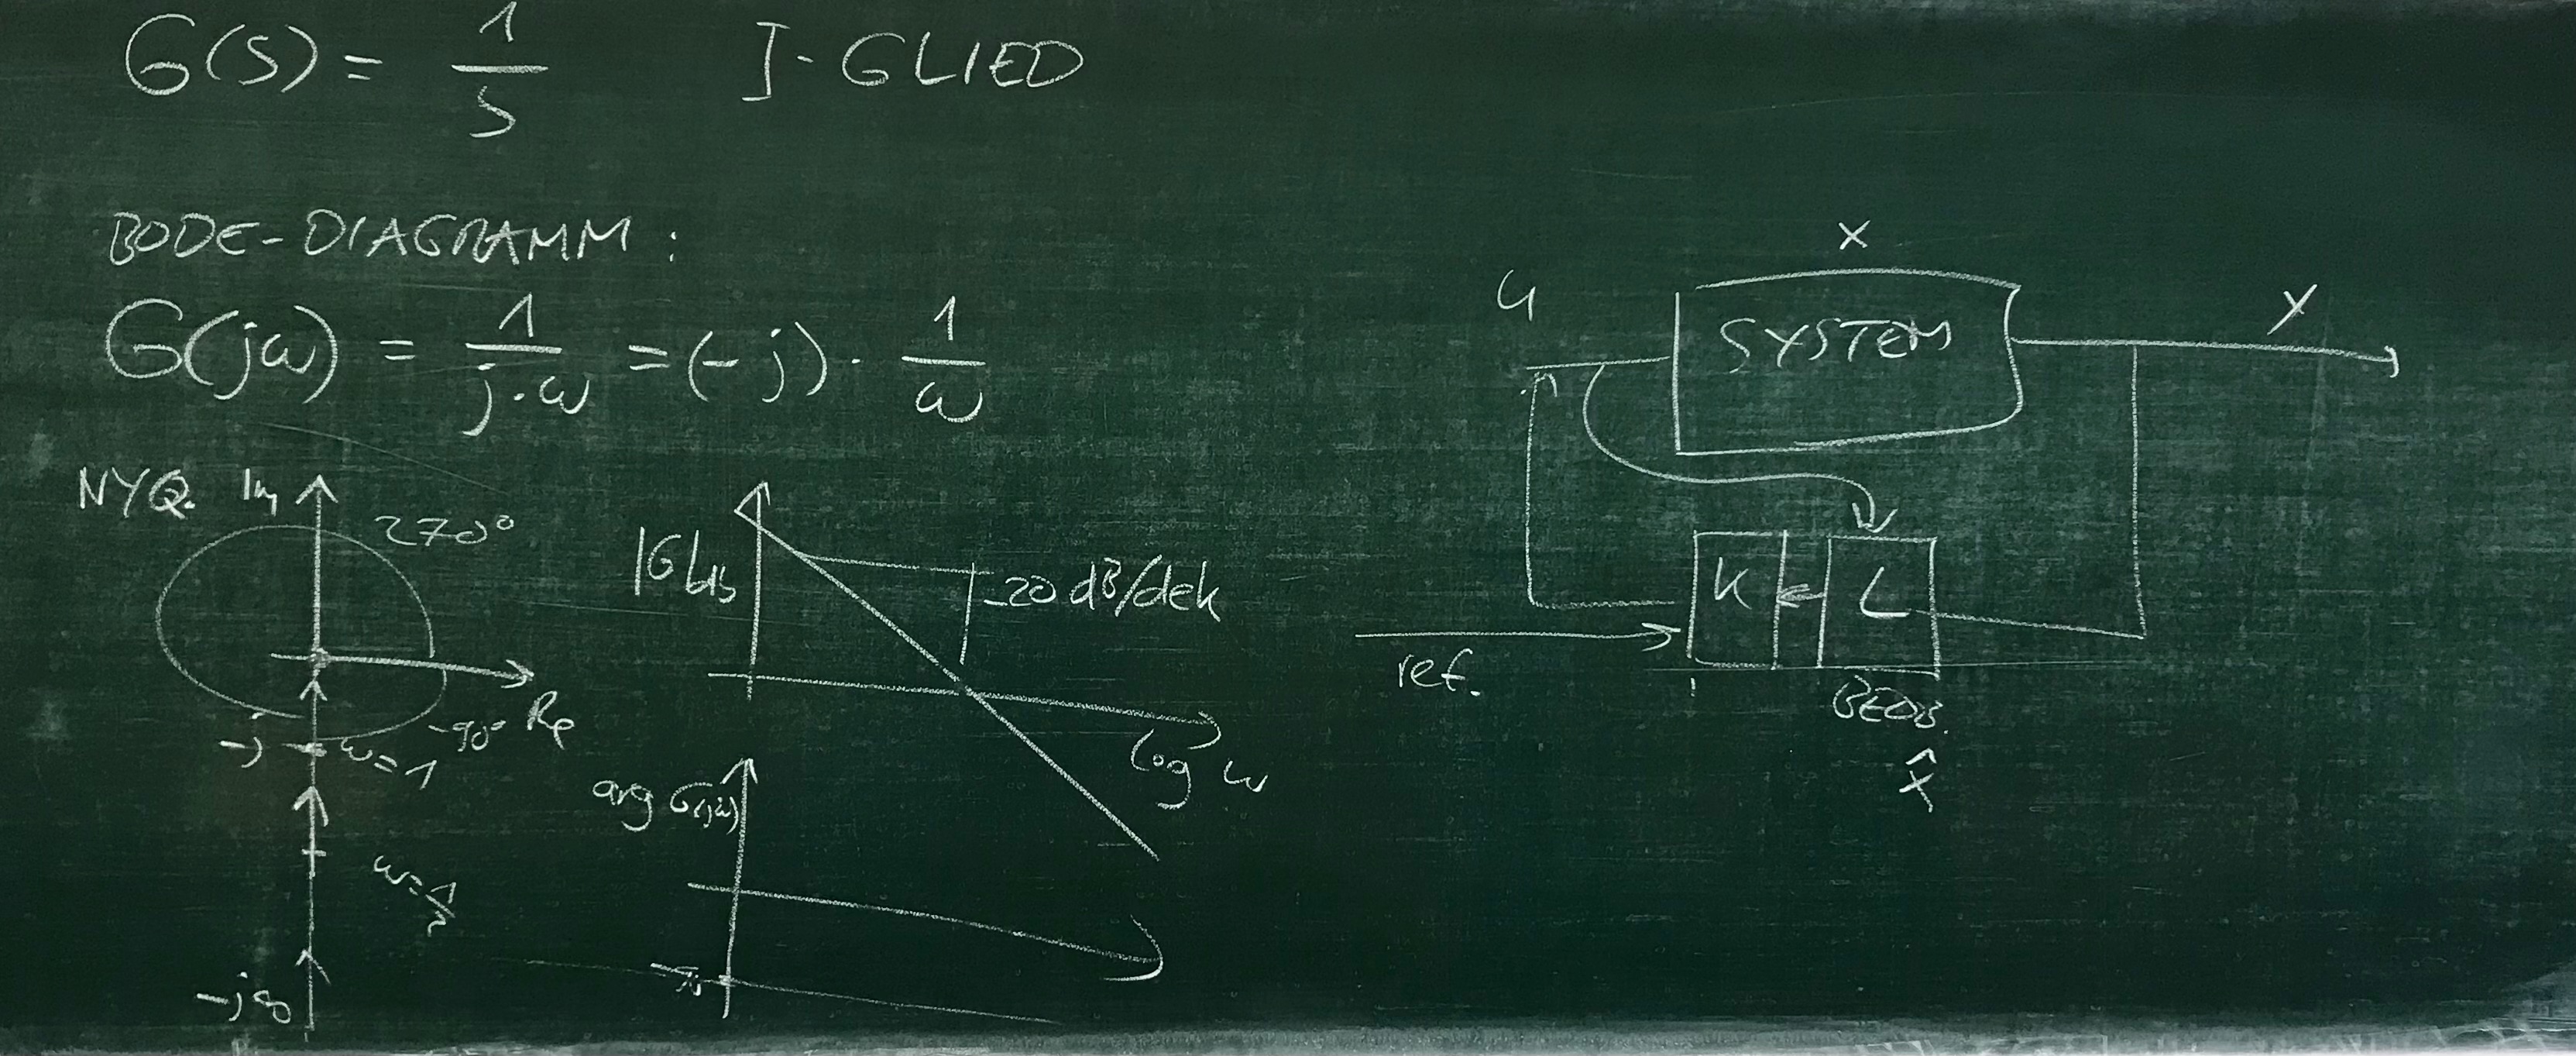 G(s) = 1/s I-GLIED
BODE-DIAGRAMM:
G(jω) = 1/(j·ω) = (-j) · 1/ω
NYQ. Im
270°
-90° Re
-j ω=1
ω=1/2
-j∞
|G|dB
-20 dB/dek
log ω
arg G(jω)
x
u SYSTEM y
K L
ref.
BEOB.
x̂